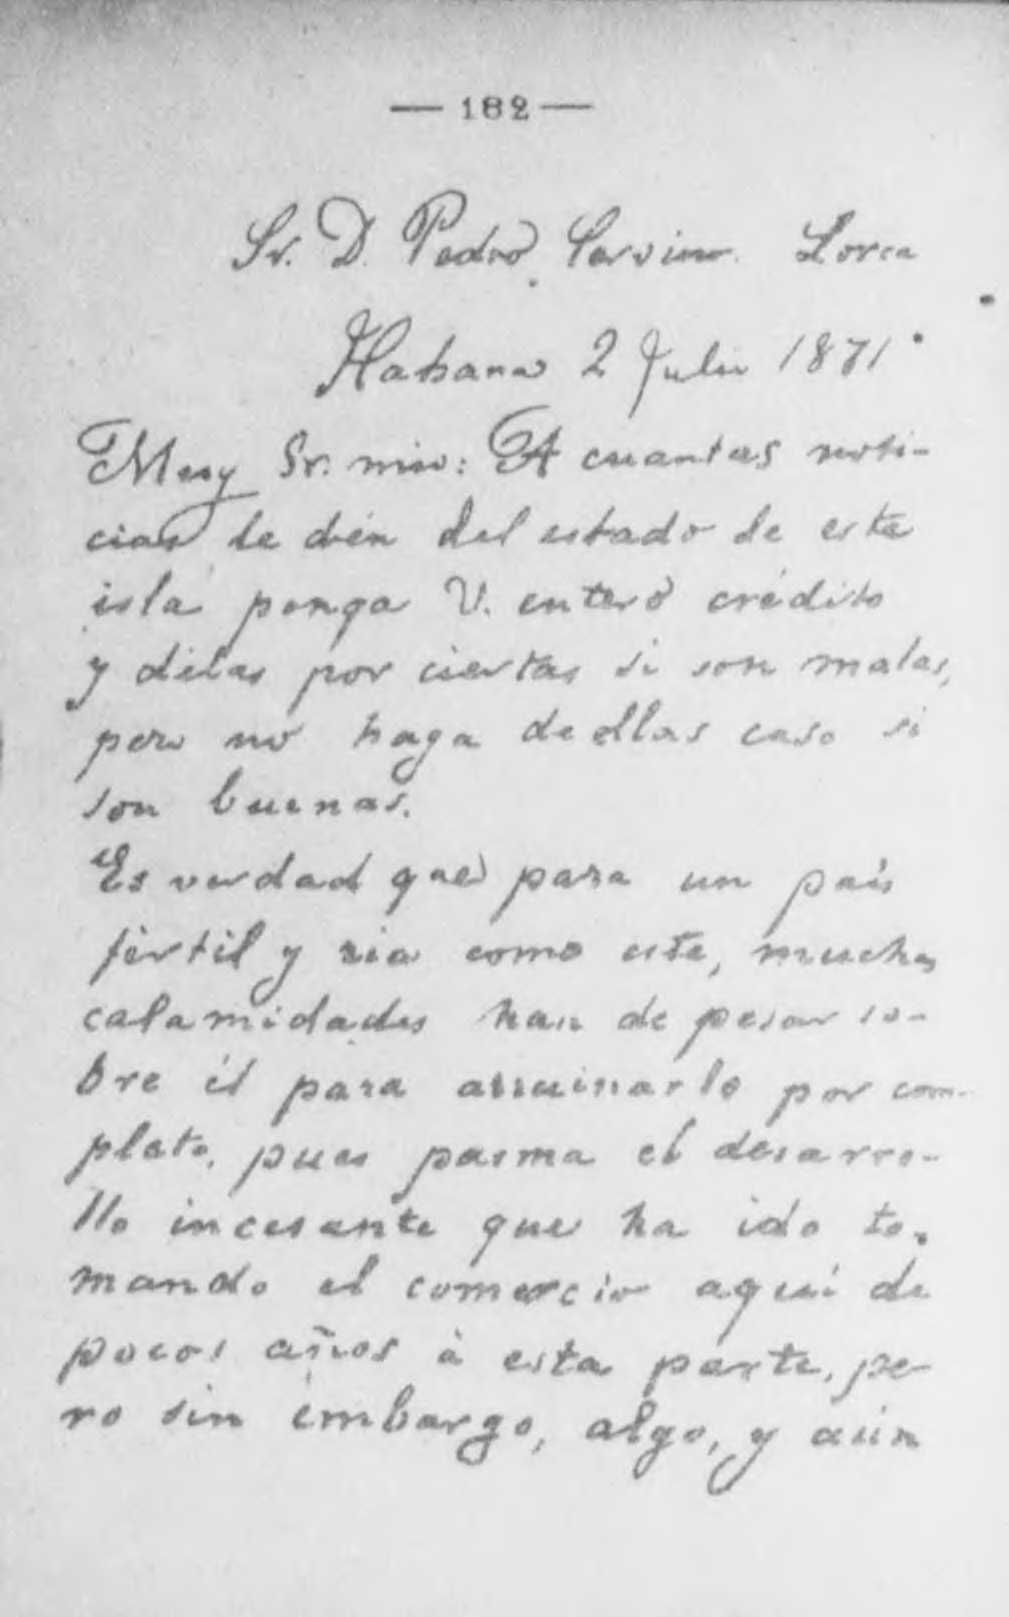 — 182 —
Sr. D. Pedro Cervino. Lorca
Habana 2 Julio 1871
Muy Sr. mio: A cuantas noti-
cias le dén del estado de esta
isla ponga V. entero crédito
y délas por ciertas si son malas,
pero no haga de ellas caso si
son buenas.
Es verdad que para un país
fértil y rico como este, muchas
calamidades han de pesar so-
bre él para arruinarlo por com-
pleto, pues pasma el desarro-
llo incesante que ha ido to-
mando el comercio aquí de
pocos años á esta parte, pe-
ro sin embargo, algo, y aún